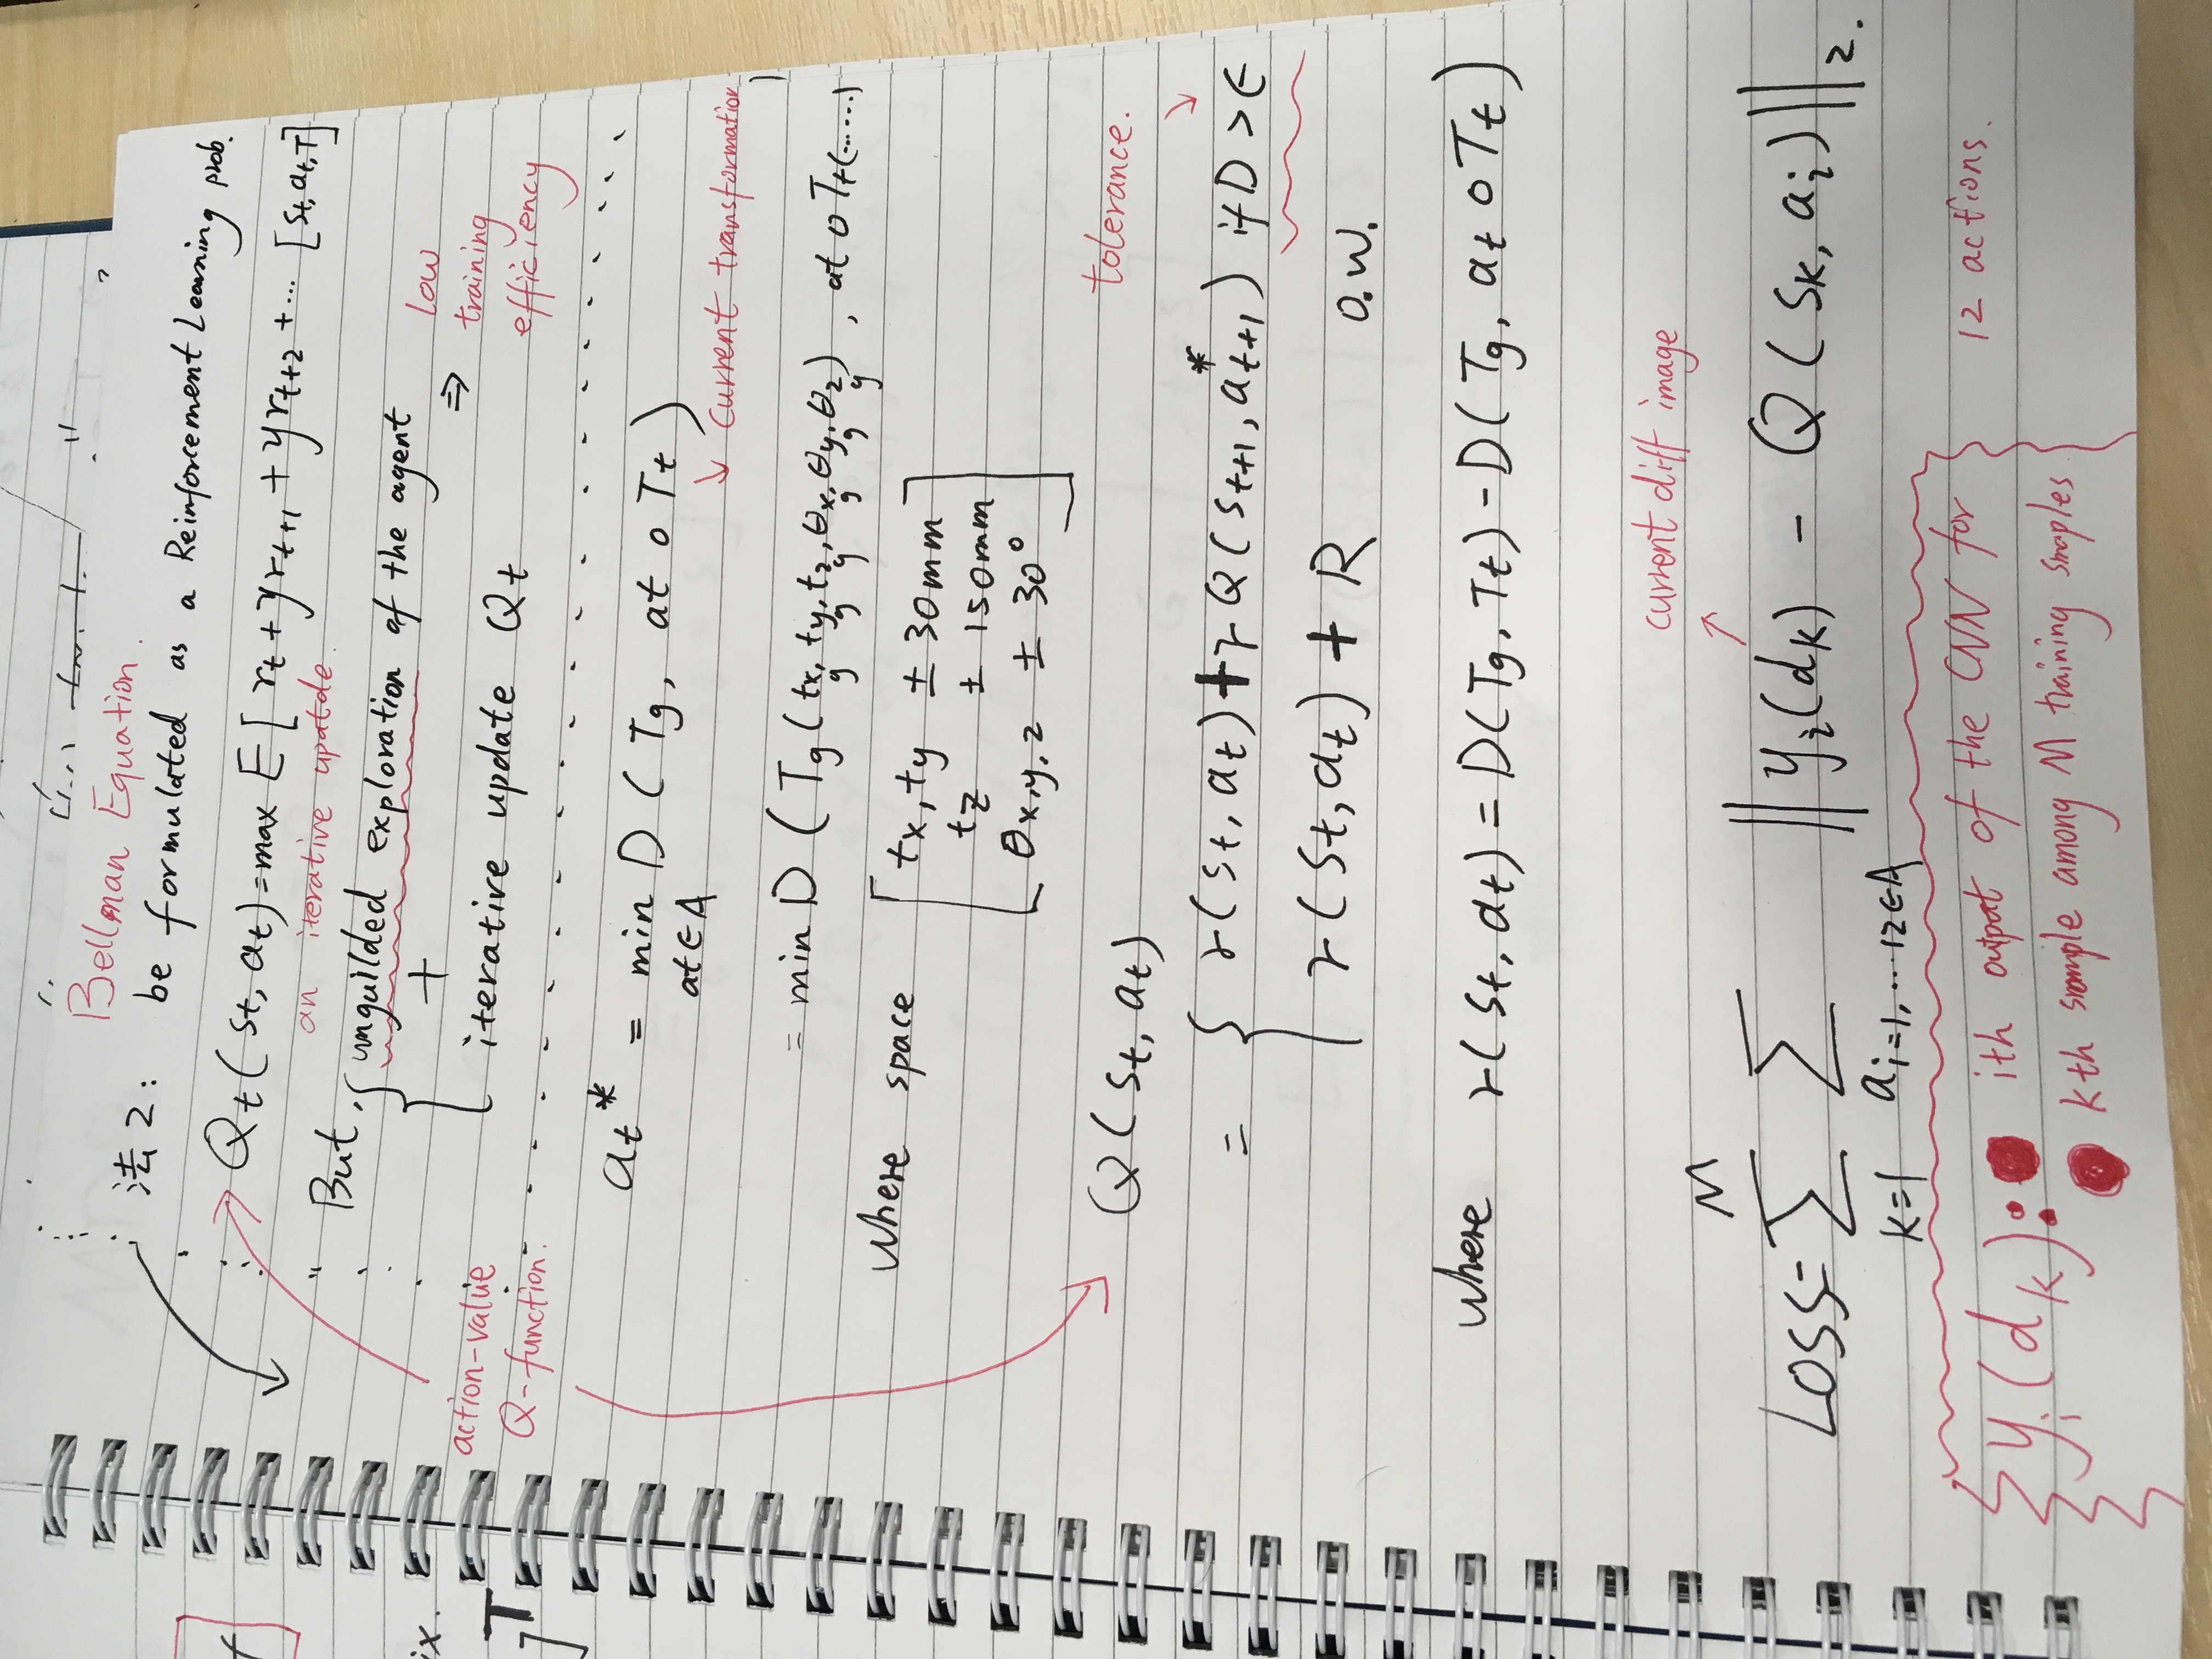 Bellman Equation.
法2: be formulated as a Reinforcement Learning prob.
Qt(st, at)=max E[rt+γrt+1+γrt+2+... [st,at,T]
an iterative upatde.
But, { unguilded exploration of the agent
+
iterative update Qt
⇒ low
training
efficiency
action-value
Q-function:
at* = min D (Tg, at o Tt)
at∈A
↘ current transformation
= min D (Tg(txg, tyg, tzg, θxg, θyg, θzg), at o Tt(......)
Where space [ tx, ty ± 30mm
tz ± 150mm
θx,y,z ± 30° ]
tolerance.
Q(st, at)
= { r(st, at)+γQ(st+1, a*t+1) if D > ϵ
r(st, at) + R o.w.
where r(st, at) = D(Tg, Tt) - D(Tg, at o Tt)
current diff image
Loss= M∑k=1 ∑ai=1,...12∈A ||yi(dk) - Q(sk, ai)||2.
yi(dk): ith output of the CNN for
kth smample among M training smaples
12 actions.
ix.
]T